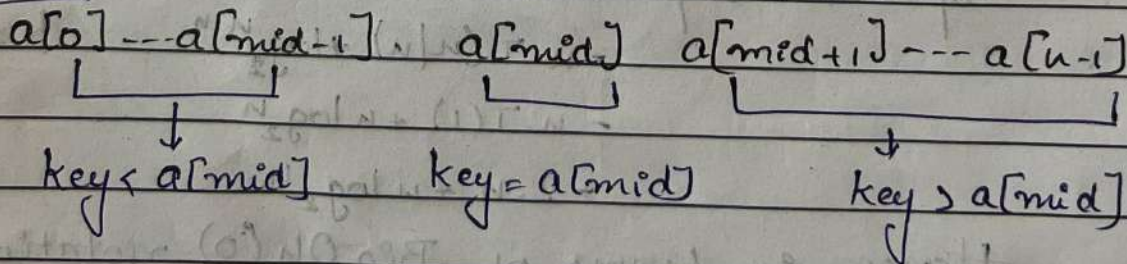 a[0] --- a[mid-1] . a[mid] a[mid+1] --- a[n-1]
key < a[mid] key = a[mid] key > a[mid]